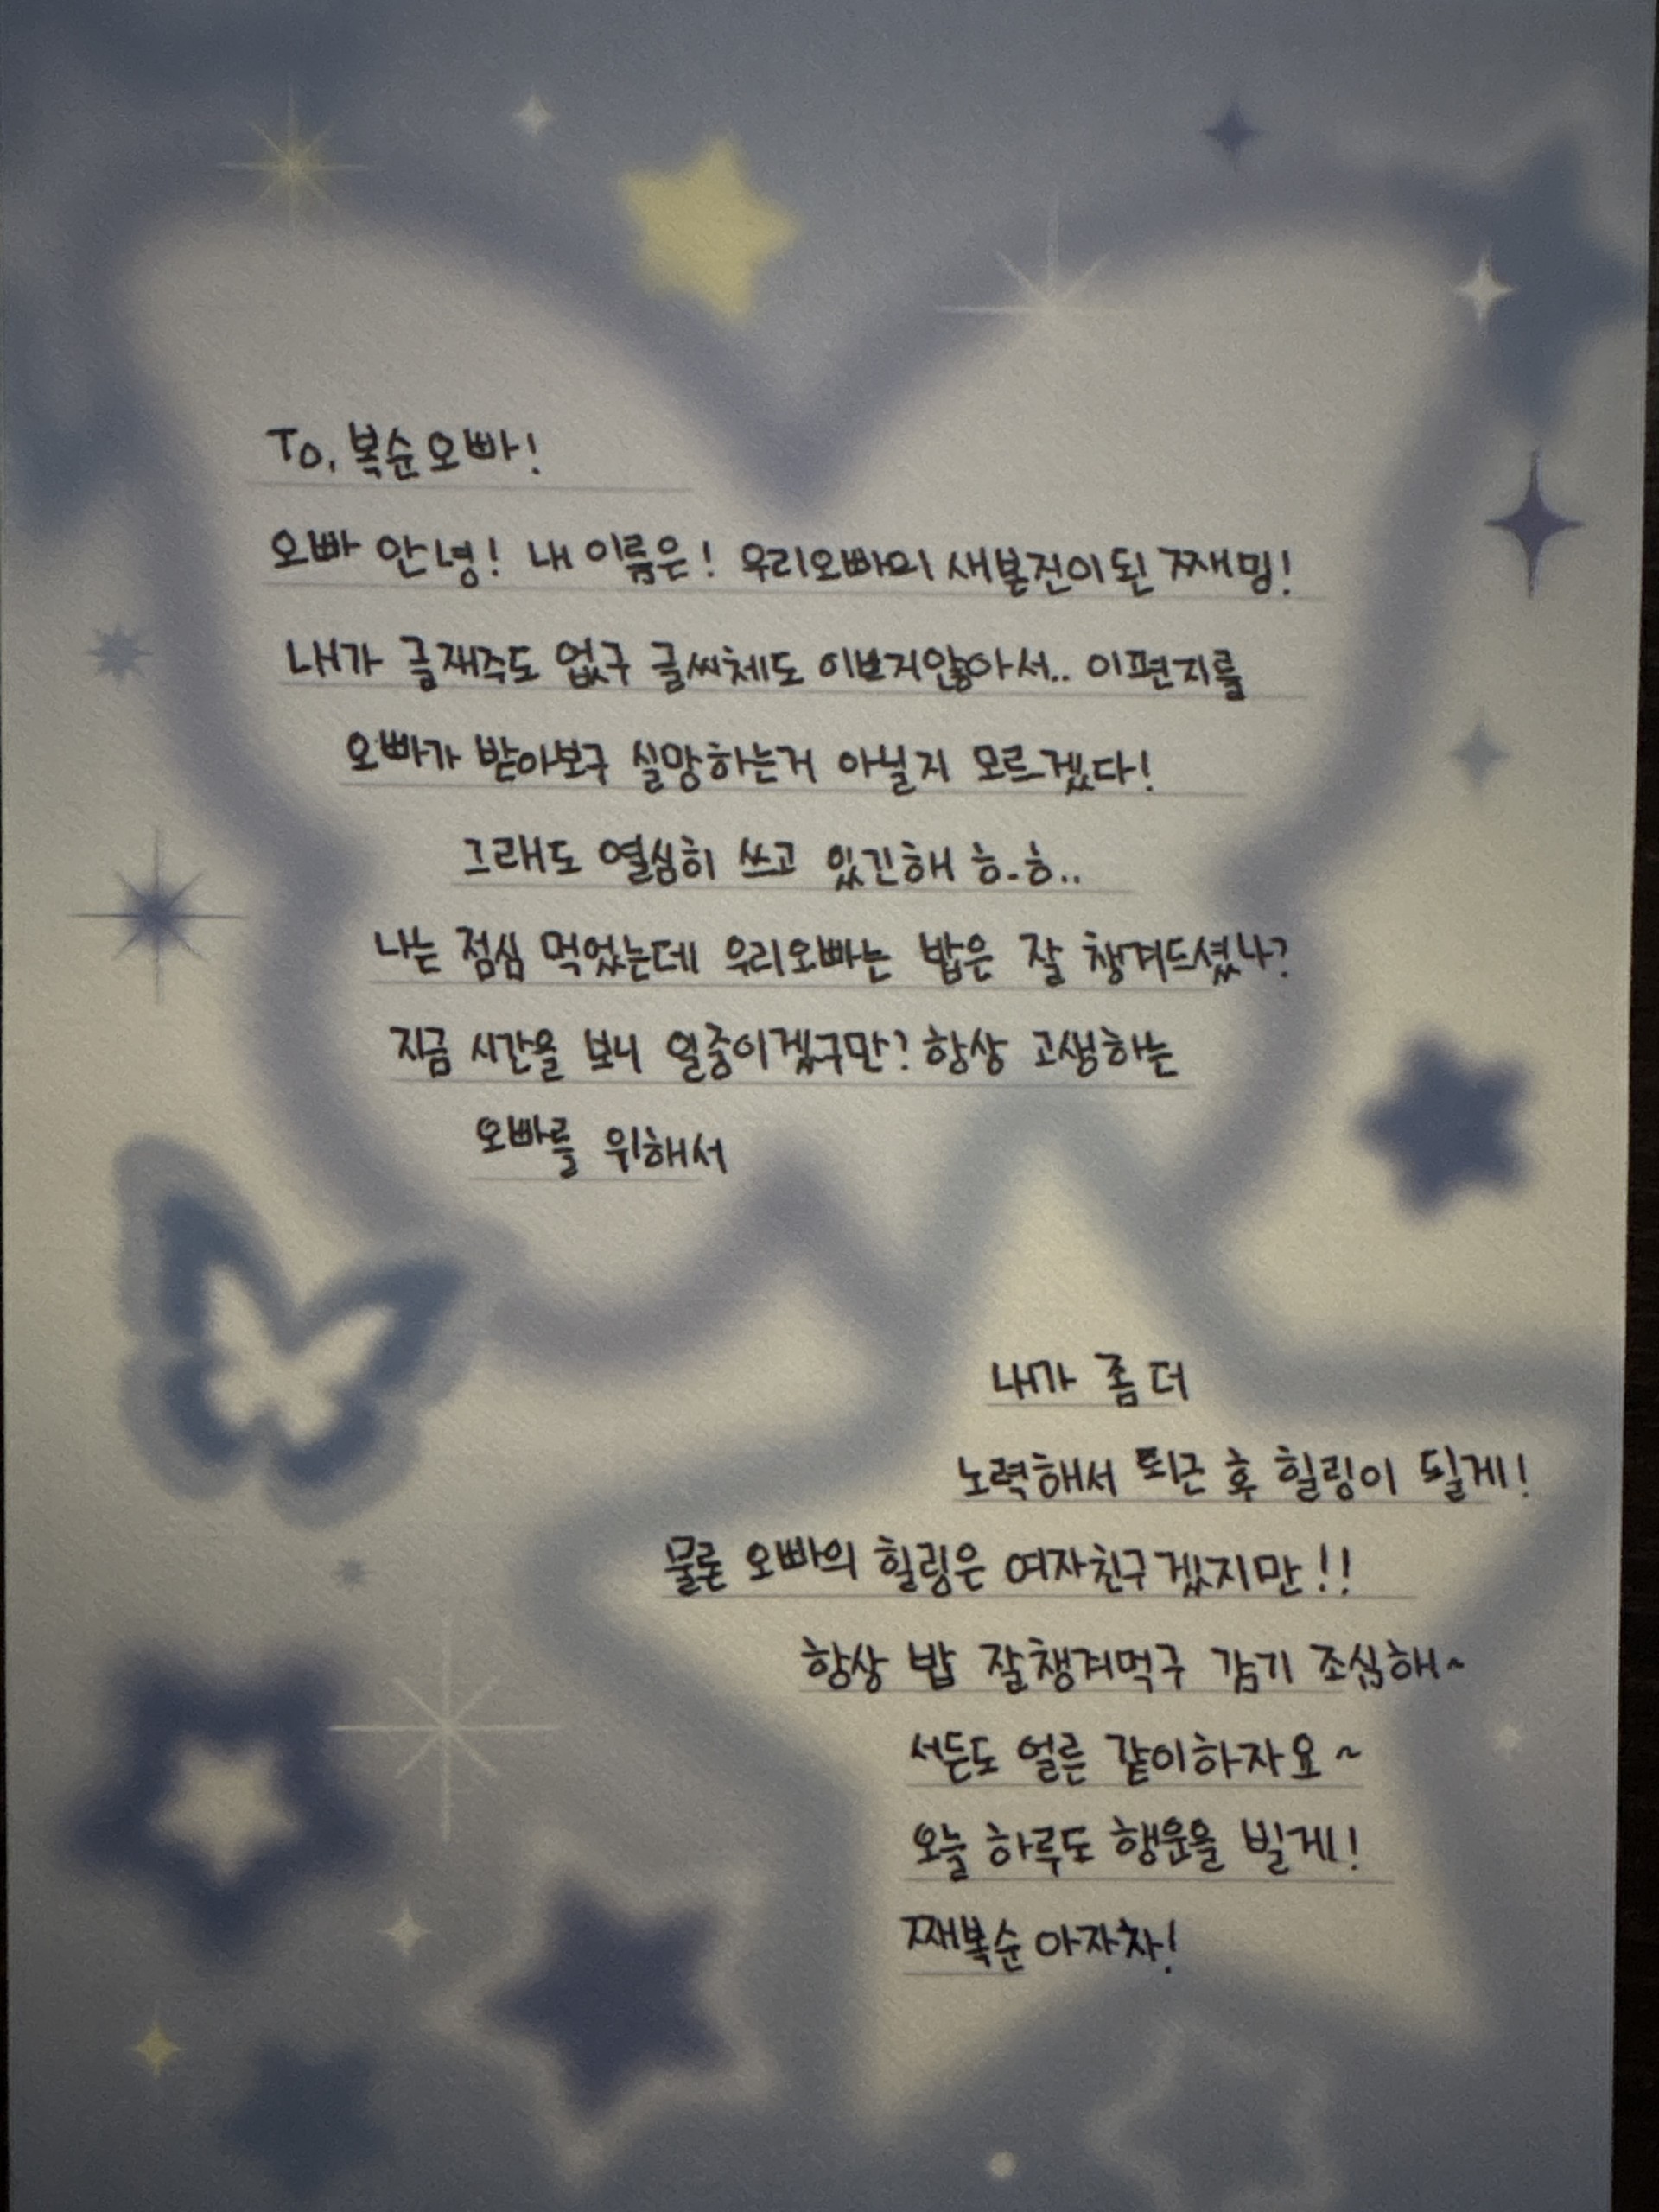 To. 복순오빠!
오빠 안녕! 내 이름은! 우리오빠의 새본진이된 째밍!
내가 글재주도 없구 글씨체도 이쁘지않아서.. 이편지를
오빠가 받아보구 실망하는거 아닐지 모르겠다!
그래도 열심히 쓰고 있긴해 ㅎ.ㅎ..
나는 점심 먹었는데 우리오빠는 밥은 잘 챙겨드셨나?
지금 시간을 보니 일중이겠구만? 항상 고생하는
오빠를 위해서
내가 좀 더
노력해서 퇴근 후 힐링이 될게!
물론 오빠의 힐링은 여자친구겠지만!!
항상 밥 잘챙겨먹구 감기 조심해~
서든도 얼른 같이하자요~
오늘 하루도 행운을 빌게!
째복순 아자차!